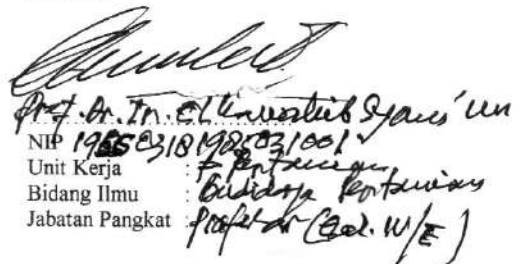 Prof. Dr. Ir.
NIP 196503181985031001
Unit Kerja : F Pertanian
Bidang Ilmu : Budidaya Pertanian
Jabatan Pangkat : Profesor (Gol. IV/E)